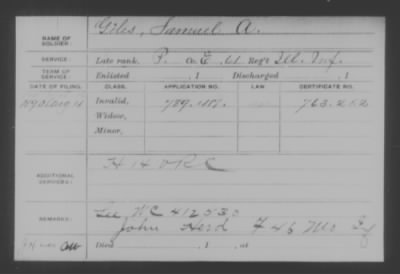 NAME OF SOLDIER: Giles, Samuel A.
SERVICE: Late rank, P. Co. E, 61 Reg't Ill. Inf.
TERM OF SERVICE: Enlisted , 1 Discharged , 1
DATE OF FILING. CLASS. APPLICATION NO. LAW CERTIFICATE NO.
Invalid, 789.118. 763.252
Widow,
Minor,
ADDITIONAL SERVICES:
REMARKS: See WC 412530
John Herd F 46 Mo
Died , 1 , at